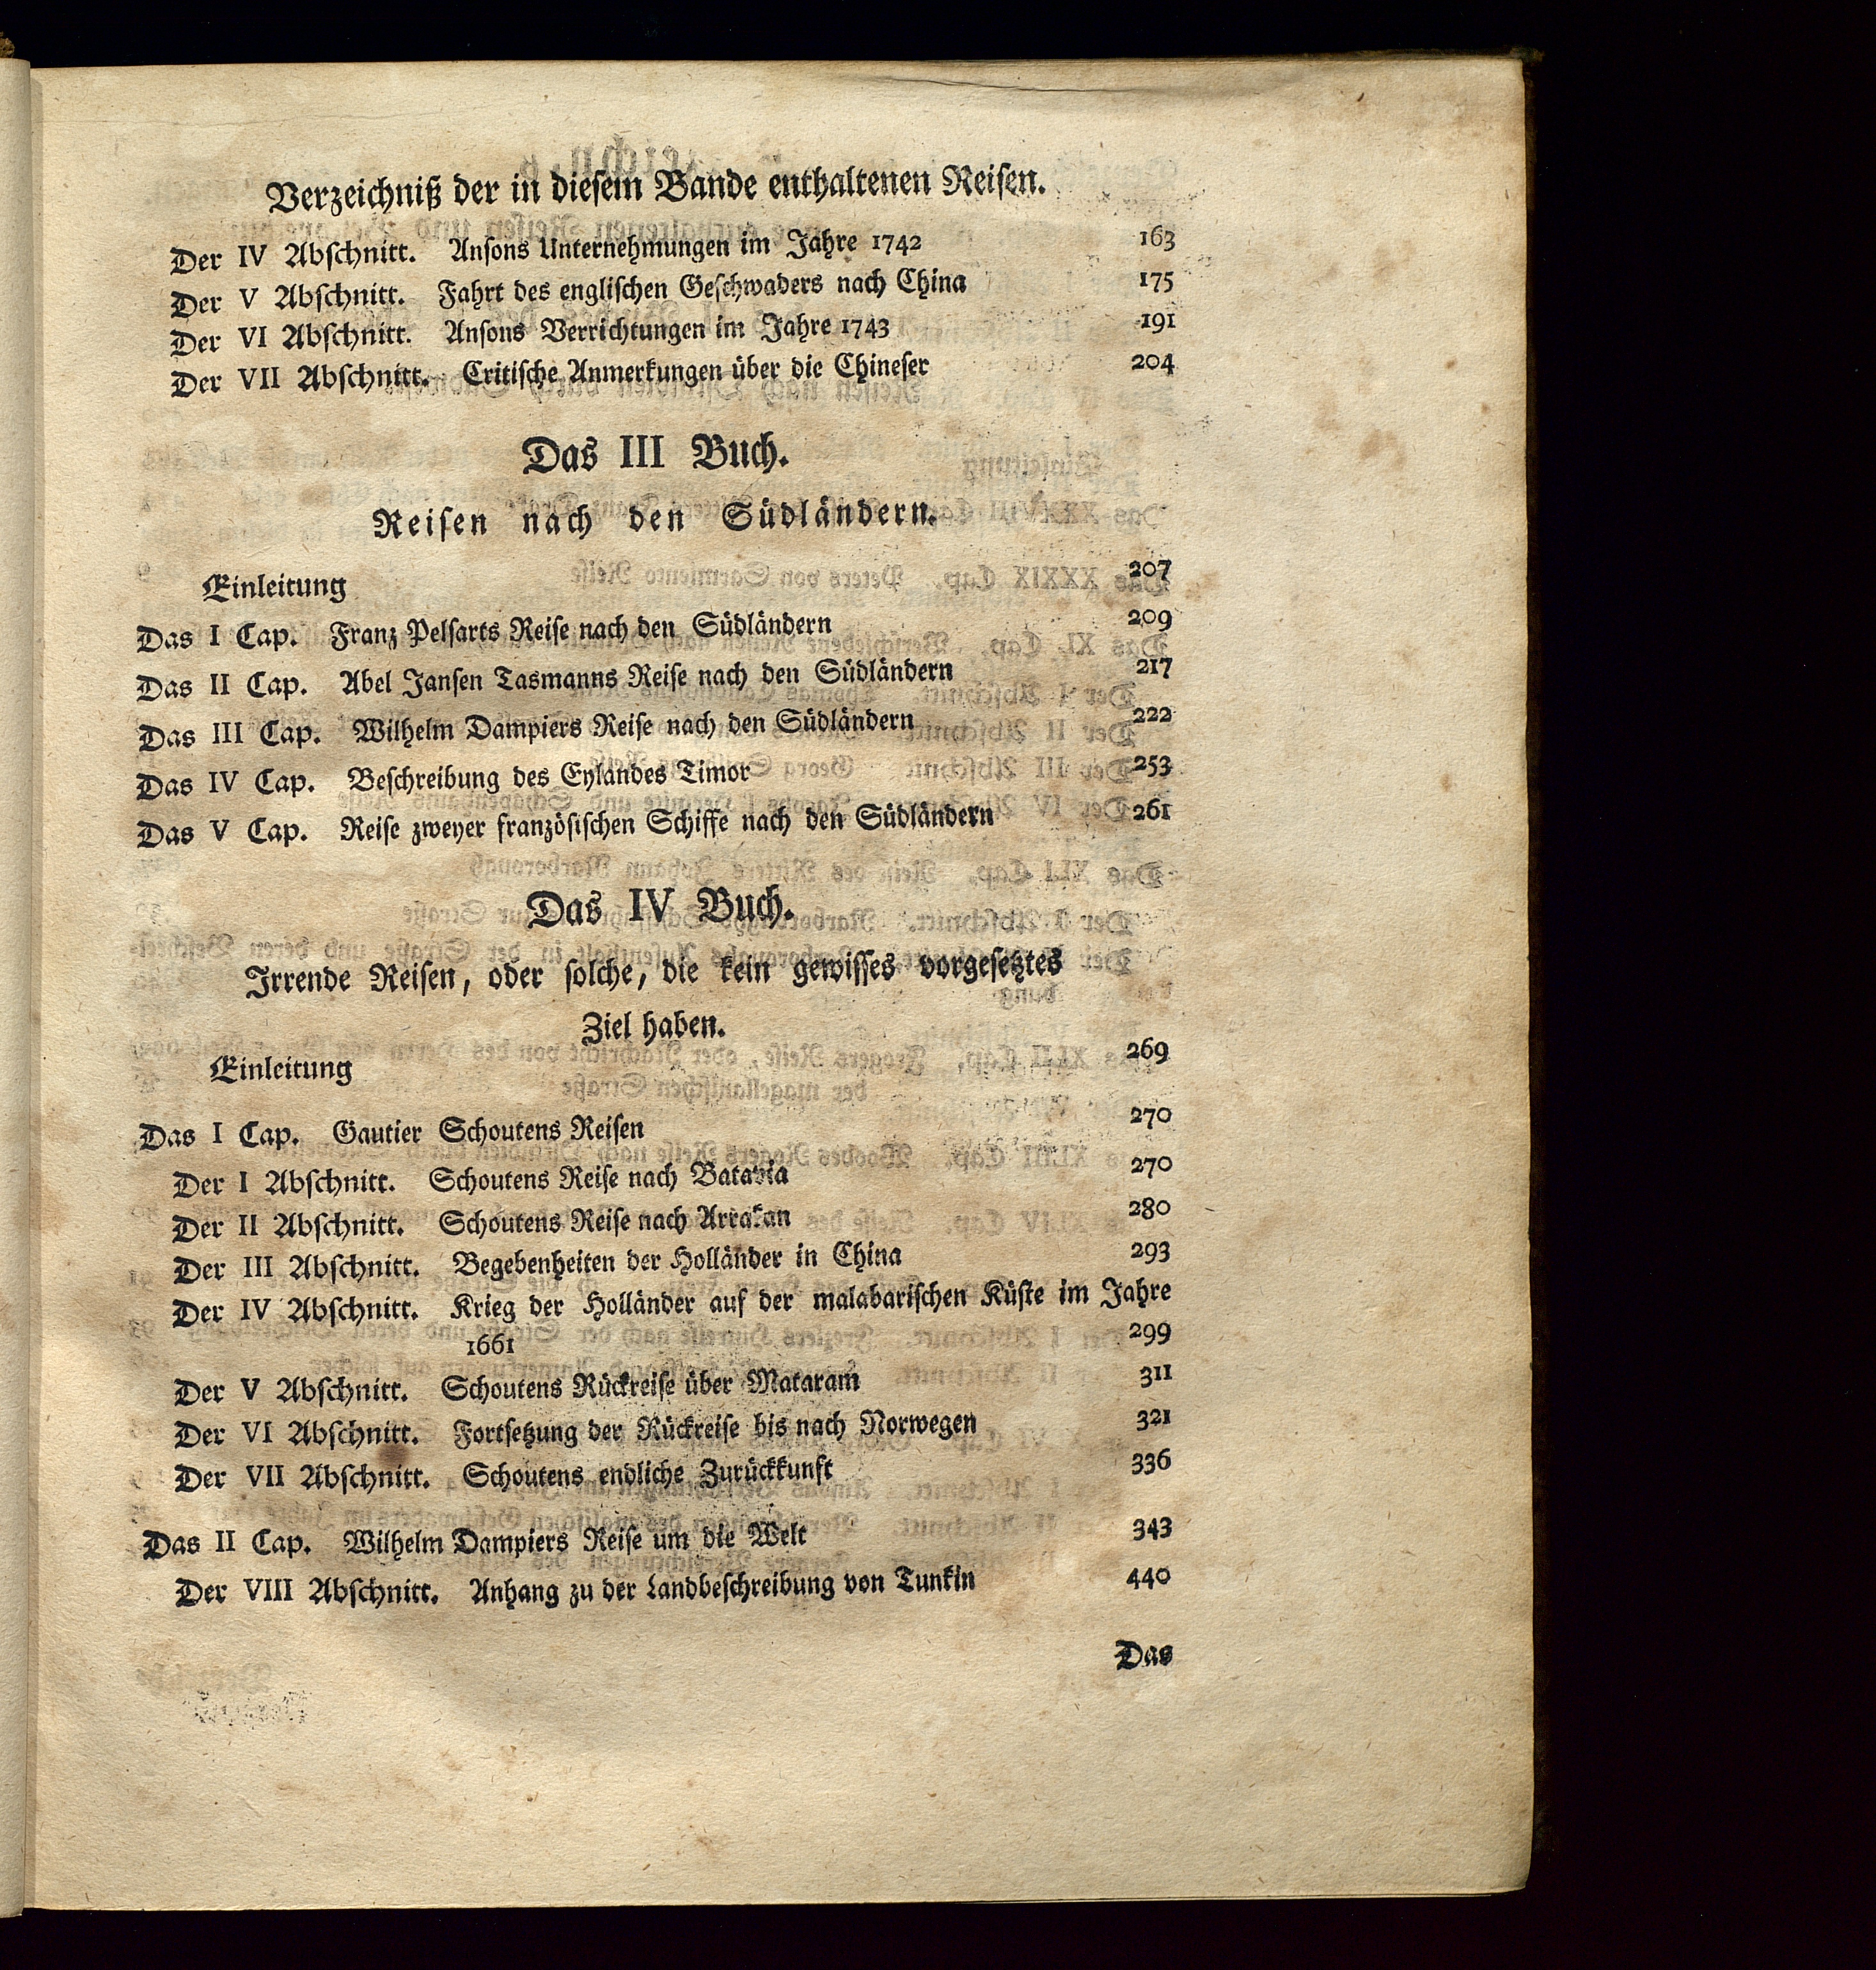 Verzeichniß der in diesem Bande enthaltenen Reisen.
Der IV Abschnitt. Ansons Unternehmungen im Jahre 1742 163
Der V Abschnitt. Fahrt des englischen Geschwaders nach China 175
Der VI Abschnitt. Ansons Verrichtungen im Jahre 1743 191
Der VII Abschnitt. Critische Anmerkungen über die Chineser 204
Das III Buch.
Reisen nach den Südländern.
Einleitung 207
Das I Cap. Franz Pelsarts Reise nach den Südländern 209
Das II Cap. Abel Jansen Tasmanns Reise nach den Südländern 217
Das III Cap. Wilhelm Dampiers Reise nach den Südländern 222
Das IV Cap. Beschreibung des Eylandes Timor 253
Das V Cap. Reise zweyer französischen Schiffe nach den Südländern 261
Das IV Buch.
Irrende Reisen, oder solche, die kein gewisses vorgesetztes
Ziel haben.
Einleitung 269
Das I Cap. Gautier Schoutens Reisen 270
Der I Abschnitt. Schoutens Reise nach Batavia 270
Der II Abschnitt. Schoutens Reise nach Arrakan 280
Der III Abschnitt. Begebenheiten der Holländer in China 293
Der IV Abschnitt. Krieg der Holländer auf der malabarischen Küste im Jahre
1661 299
Der V Abschnitt. Schoutens Rückreise über Mataram 311
Der VI Abschnitt. Fortsetzung der Rückreise bis nach Norwegen 321
Der VII Abschnitt. Schoutens endliche Zurückkunft 336
Das II Cap. Wilhelm Dampiers Reise um die Welt 343
Der VIII Abschnitt. Anhang zu der Landbeschreibung von Tunkin 440
Das